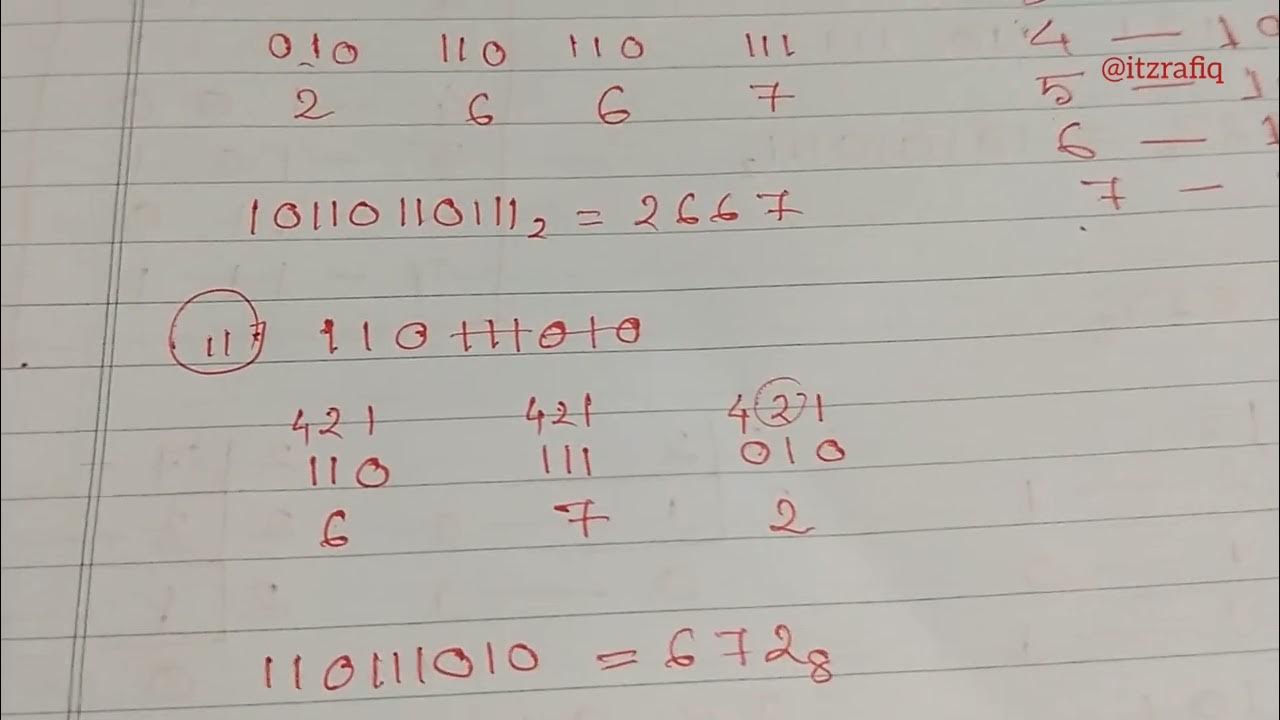 010 110 110 111
2 6 6 7
10110110111₂ = 2667
4 — 10
@itzrafiq
5 — 1
6 — 1
7 —
110 111010
421 421 421
110 111 010
6 7 2
110111010 = 672₈